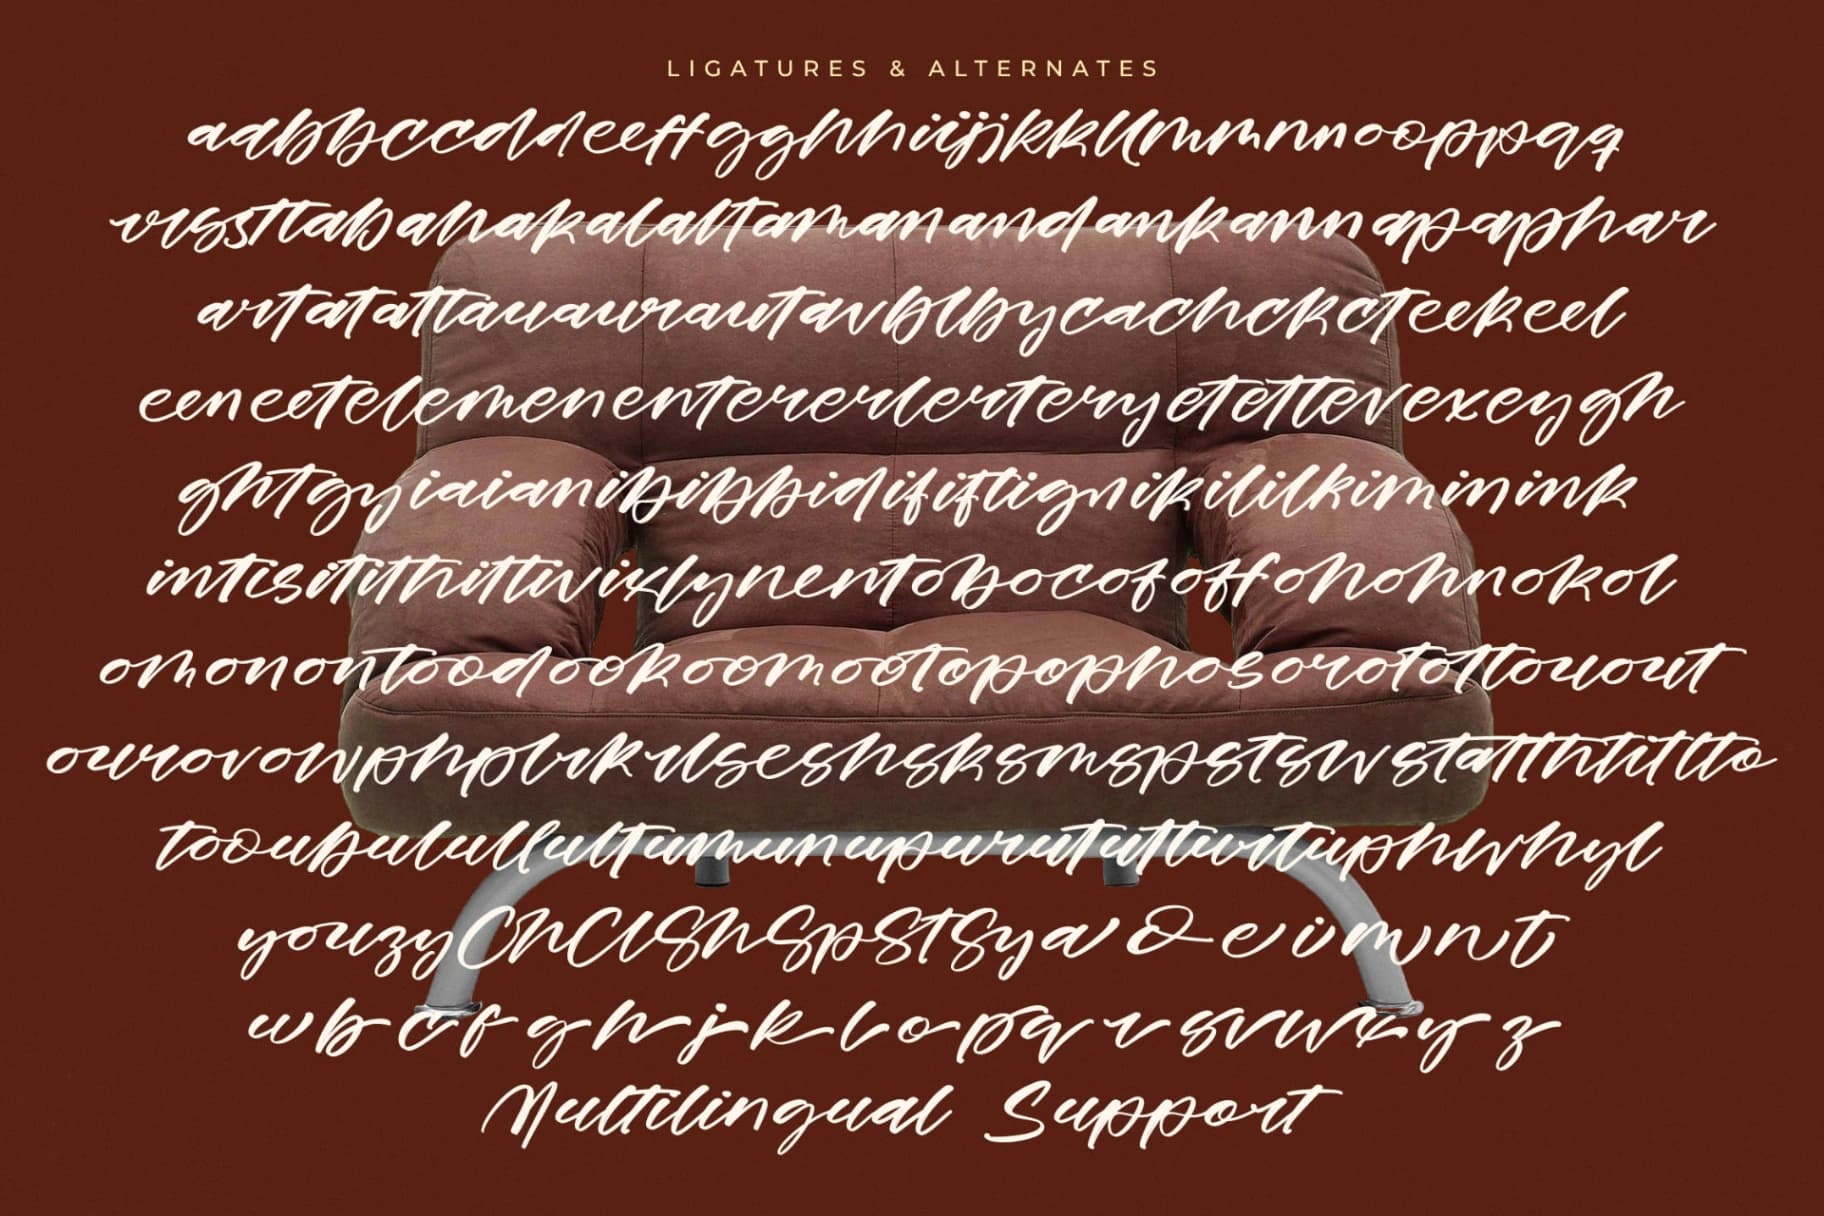 LIGATURES & ALTERNATES
aabbccddeeffgghhiijjkkllmmnnooppqq
rrssttabahakalaltamanandankannapaphar
artatattauauraurautavblbycachckcteekeel
eeneetelemenenterererlerteryetettevexeygh
ghtgyiaiaianibibbidififtignikililkiminink
intisitithittivixlynentobocofoffohohnokol
omonontoodookoomootopophosorototttouout
ourovowphplrkrlseshsksmspstswstatthtitltto
tooubululullultumunupurututturituphwhyl
youzyChClShSpStSya o e i m n t
u b c f g h j k l o p q r s v w x y z
Multilingual Support